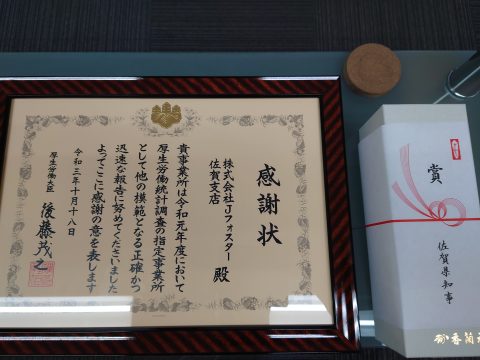 感謝状
株式会社Jフォスター
佐賀支店 殿
貴事業所は令和元年度において
厚生労働統計調査の指定事業所
として他の模範となる正確かつ
迅速な報告に努めてくださいました
よってここに感謝の意を表します
令和三年十月十八日
厚生労働大臣 後藤茂之
賞
佐賀県知事
香蘭